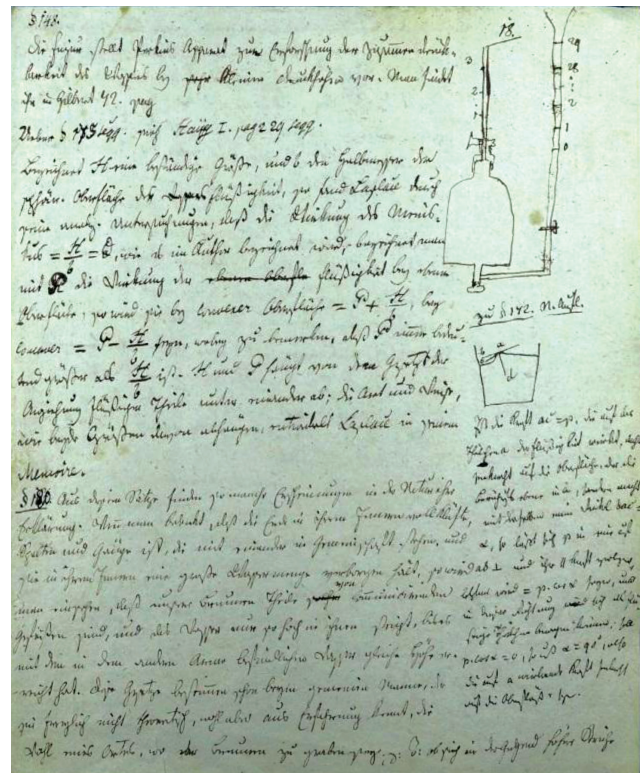 § 148.
Die Figur stellt Perkins Apparat zur Erforschung der Zusammendrück-
barkeit des Wassers bey kleinen Druckhöhen vor. Man findet
ihn in Gilbert 72. pag
Ueber § 175 segg. sieh Haüy I. pag 229 segg.
Bezeichnet H eine beständige Größe, und b den Halbmesser der
sphär. Oberfläche der Flüßigkeit, so fand Laplace durch
seine analyt. Untersuchungen, daß die Wirkung des Menis-
kus = H/b = Q, wie es im Author bezeichnet wird, bezeichnet man
mit P die Wirkung der Flüßigkeit bey ebener
Oberfläche, so wird sie bey convexer Oberfläche = P + H/b, bey
concaver = P - H/b seyn, wobey zu bemerken, daß P immer bedeu-
tend größer als H/b ist. H und P hängt von dem Gesetz der
Anziehung flüßiger Theile unter einander ab; die Art und Weise,
wie beyde Größen davon abhängen, entwickelt Laplace in seinem
Memoire.
§ 180. Aus diesem Satze finden so manche Erscheinungen in der Natur ihre
Erklärung. Wenn man bedenkt, daß die Erde in ihrem Innern voll Klüfte,
Spalten und Gänge ist, die mit einander in Gemeinschaft stehen, und
die in ihrem Innern eine große Wassermenge verborgen hält, so wird
man einsehen, daß unsere Brunnen Theile von communicirenden
Gefäßen sind, und das Wasser nur so hoch in ihnen steigt, bis es
mit dem in dem andern Arme befindlichen Wasser gleiche Höhe er-
reicht hat. Diese Gesetze bestimmen schon beym gemeinen Manne, der
sie freylich nicht theoretisch, wohl aber aus Erfahrung kennt, die
Wahl eines Ortes, wo der Brunnen zu graben sey, z. B. ob sich in der Gegend höher
18.
3
2
1
29
28
2
1
0
zu § 142. N. Aufl.
b
a
d
Ist die Kraft ac = p, die auf das
Theilchen a der Flüßigkeit wirkt, nicht
senkrecht auf die Oberfläche
α, so läßt sich p in eine ist
ab ⊥ und ihr ∥ Kraft zerlegen,
letztere wird = p. cos α seyn, und
in dieser Richtung wird sich als
p. cos α = 0, so muß α = 90°, also
die auf a wirkende Kraft senkrecht
auf die Oberfläche seyn.